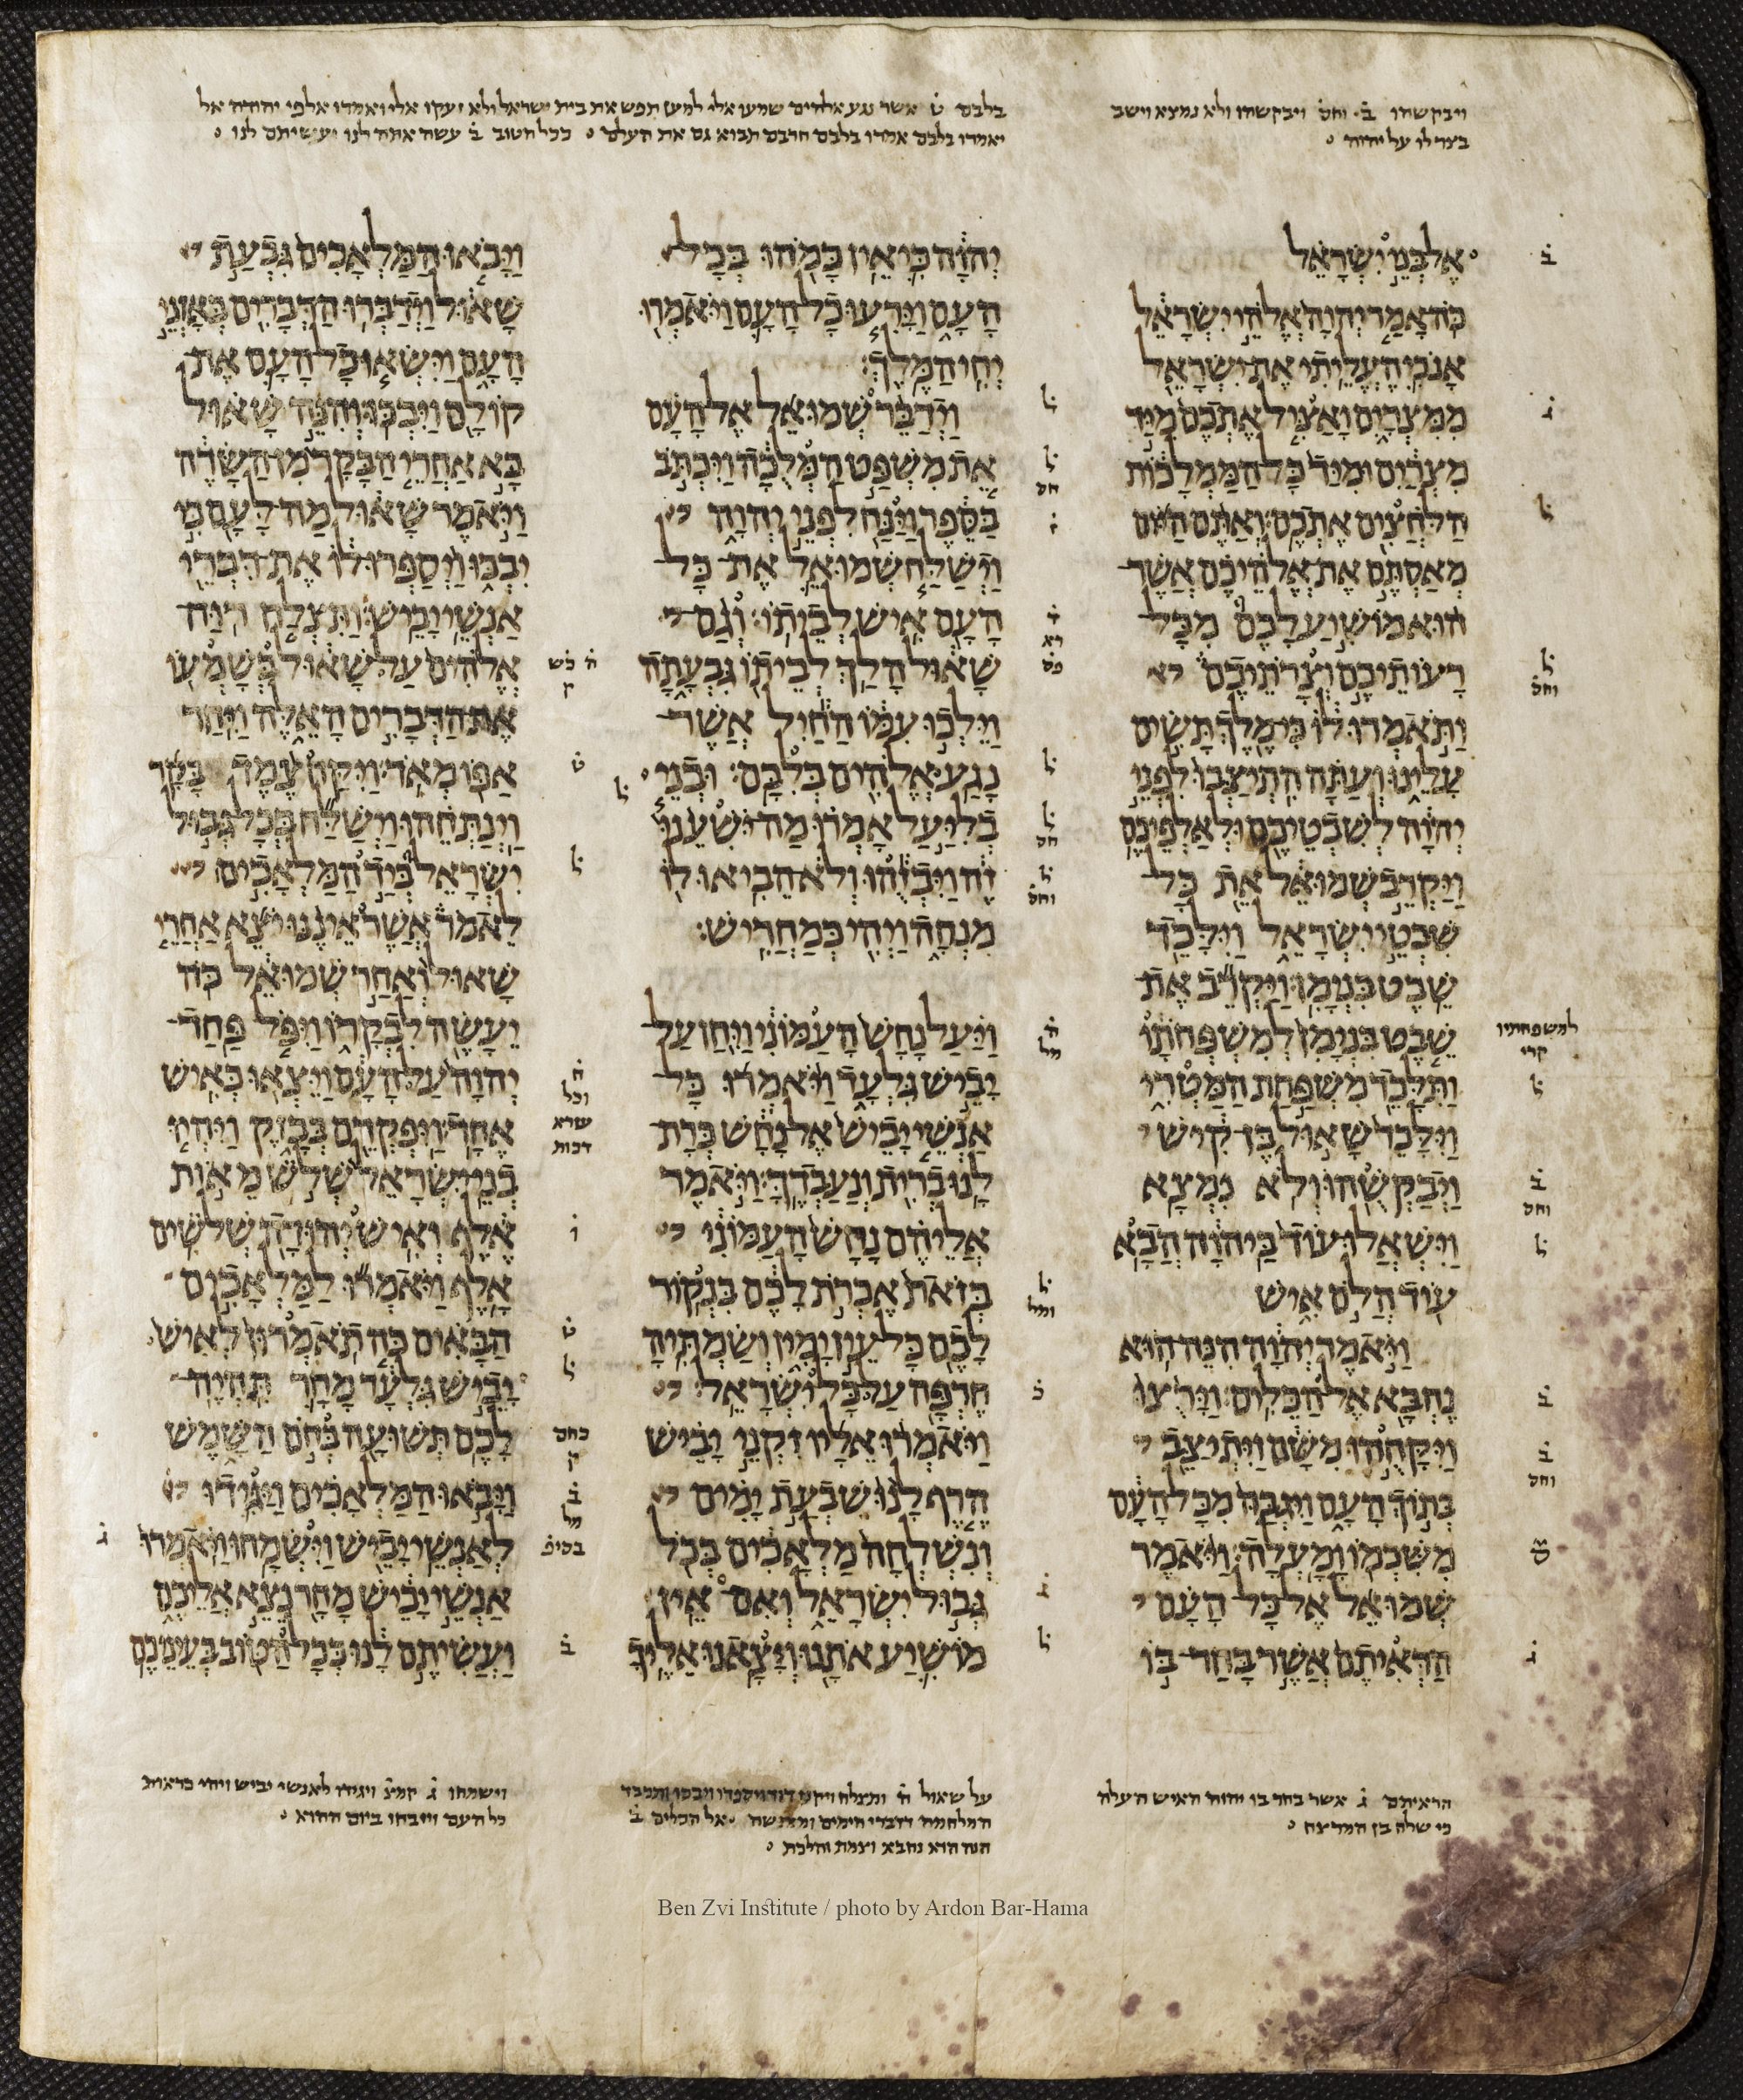 ויבקשהו בׄ וחס ויבקשהו ולא נמצא וישב
בצר לו על יהוה
בלבם טׄ אשר נגע אלהים שמעו אלי למען תפש את בית ישראל ולא זעקו אלי ואמרו אלפי יהודה אל
יאמרו בלבם אמרו בלבם חרבם תבוא גם את העלם ככל הטוב בׄ עשה אתה לנו ועשיתם לנו
אֶל בְּנֵי יִשְׂרָאֵל
כֹּה אָמַר יְהוָה אֱלֹהֵי יִשְׂרָאֵל
אָנֹכִי הֶעֱלֵיתִי אֶת יִשְׂרָאֵל
מִמִּצְרָיִם וָאַצִּיל אֶתְכֶם מִיַּד
מִצְרַיִם וּמִיַּד כָּל הַמַּמְלָכוֹת
הַלֹּחֲצִים אֶתְכֶם׃ וְאַתֶּם הַיּוֹם
מְאַסְתֶּם אֶת אֱלֹהֵיכֶם אֲשֶׁר
הוּא מוֹשִׁיעַ לָכֶם מִכָּל
רָעוֹתֵיכֶם וְצָרֹתֵיכֶם
וַתֹּאמְרוּ לוֹ כִּי מֶלֶךְ תָּשִׂים
עָלֵינוּ וְעַתָּה הִתְיַצְּבוּ לִפְנֵי
יְהוָה לְשִׁבְטֵיכֶם וּלְאַלְפֵיכֶם
וַיַּקְרֵב שְׁמוּאֵל אֵת כָּל
שִׁבְטֵי יִשְׂרָאֵל וַיִּלָּכֵד
שֵׁבֶט בִּנְיָמִן׃ וַיַּקְרֵב אֶת
שֵׁבֶט בִּנְיָמִן לְמִשְׁפְּחֹתָו
וַתִּלָּכֵד מִשְׁפַּחַת הַמַּטְרִי
וַיִּלָּכֵד שָׁאוּל בֶּן קִישׁ
וַיְבַקְשֻׁהוּ וְלֹא נִמְצָא
וַיִּשְׁאֲלוּ עוֹד בַּיהוָה הֲבָא
עוֹד הֲלֹם אִישׁ
וַיֹּאמֶר יְהוָה הִנֵּה הוּא
נֶחְבָּא אֶל הַכֵּלִים׃ וַיָּרֻצוּ
וַיִּקָּחֻהוּ מִשָּׁם וַיִּתְיַצֵּב
בְּתוֹךְ הָעָם וַיִּגְבַּהּ מִכָּל הָעָם
מִשִּׁכְמוֹ וָמָעְלָה׃ וַיֹּאמֶר
שְׁמוּאֵל אֶל כָּל הָעָם
הַרְּאִיתֶם אֲשֶׁר בָּחַר בּוֹ
יְהוָה כִּי אֵין כָּמֹהוּ בְּכָל
הָעָם וַיָּרִעוּ כָל הָעָם וַיֹּאמְרוּ
יְחִי הַמֶּלֶךְ׃
וַיְדַבֵּר שְׁמוּאֵל אֶל הָעָם
אֵת מִשְׁפַּט הַמְּלֻכָה וַיִּכְתֹּב
בַּסֵּפֶר וַיַּנַּח לִפְנֵי יְהוָה
וַיְשַׁלַּח שְׁמוּאֵל אֶת כָּל
הָעָם אִישׁ לְבֵיתוֹ׃ וְגַם
שָׁאוּל הָלַךְ לְבֵיתוֹ גִּבְעָתָה
וַיֵּלְכוּ עִמּוֹ הַחַיִל אֲשֶׁר
נָגַע אֱלֹהִים בְּלִבָּם׃ וּבְנֵי
בְלִיַּעַל אָמְרוּ מַה יֹּשִׁעֵנוּ
זֶה וַיִּבְזֻהוּ וְלֹא הֵבִיאוּ לוֹ
מִנְחָה וַיְהִי כְּמַחֲרִישׁ׃
וַיַּעַל נָחָשׁ הָעַמּוֹנִי וַיִּחַן עַל
יָבֵישׁ גִּלְעָד וַיֹּאמְרוּ כָּל
אַנְשֵׁי יָבֵישׁ אֶל נָחָשׁ כְּרָת
לָנוּ בְרִית וְנַעַבְדֶךָּ׃ וַיֹּאמֶר
אֲלֵיהֶם נָחָשׁ הָעַמּוֹנִי
בְּזֹאת אֶכְרֹת לָכֶם בִּנְקוֹר
לָכֶם כָּל עֵין יָמִין וְשַׂמְתִּיהָ
חֶרְפָּה עַל כָּל יִשְׂרָאֵל׃
וַיֹּאמְרוּ אֵלָיו זִקְנֵי יָבֵישׁ
הֶרֶף לָנוּ שִׁבְעַת יָמִים
וְנִשְׁלְחָה מַלְאָכִים בְּכֹל
גְּבוּל יִשְׂרָאֵל וְאִם אֵין
מוֹשִׁיעַ אֹתָנוּ וְיָצָאנוּ אֵלֶיךָ
וַיָּבֹאוּ הַמַּלְאָכִים גִּבְעַת
שָׁאוּל וַיְדַבְּרוּ הַדְּבָרִים בְּאָזְנֵי
הָעָם וַיִּשְׂאוּ כָל הָעָם אֶת
קוֹלָם וַיִּבְכּוּ׃ וְהִנֵּה שָׁאוּל
בָּא אַחֲרֵי הַבָּקָר מִן הַשָּׂדֶה
וַיֹּאמֶר שָׁאוּל מַה לָּעָם כִּי
יִבְכּוּ וַיְסַפְּרוּ לוֹ אֶת דִּבְרֵי
אַנְשֵׁי יָבֵישׁ׃ וַתִּצְלַח רוּחַ
אֱלֹהִים עַל שָׁאוּל בְּשָׁמְעוֹ
אֶת הַדְּבָרִים הָאֵלֶּה וַיִּחַר
אַפּוֹ מְאֹד׃ וַיִּקַּח צֶמֶד בָּקָר
וַיְנַתְּחֵהוּ וַיְשַׁלַּח בְּכָל גְּבוּל
יִשְׂרָאֵל בְּיַד הַמַּלְאָכִים
לֵאמֹר אֲשֶׁר אֵינֶנּוּ יֹצֵא אַחֲרֵי
שָׁאוּל וְאַחַר שְׁמוּאֵל כֹּה
יֵעָשֶׂה לִבְקָרוֹ וַיִּפֹּל פַּחַד
יְהוָה עַל הָעָם וַיֵּצְאוּ כְּאִישׁ
אֶחָד׃ וַיִּפְקְדֵם בְּבָזֶק וַיִּהְיוּ
בְנֵי יִשְׂרָאֵל שְׁלֹשׁ מֵאוֹת
אֶלֶף וְאִישׁ יְהוּדָה שְׁלֹשִׁים
אָלֶף׃ וַיֹּאמְרוּ לַמַּלְאָכִים
הַבָּאִים כֹּה תֹאמְרוּן לְאִישׁ
יָבֵישׁ גִּלְעָד מָחָר תִּהְיֶה
לָכֶם תְּשׁוּעָה בְּחֹם הַשָּׁמֶשׁ
וַיָּבֹאוּ הַמַּלְאָכִים וַיַּגִּידוּ
לְאַנְשֵׁי יָבֵישׁ וַיִּשְׂמָחוּ׃ וַיֹּאמְרוּ
אַנְשֵׁי יָבֵישׁ מָחָר נֵצֵא אֲלֵיכֶם
וַעֲשִׂיתֶם לָּנוּ כְּכָל הַטּוֹב בְּעֵינֵיכֶם
למשפחתיו
קרי
הראיתם גׄ אשר בחר בו יהוה האיש העלה
כי שלח בן המרצח
על שאול
המלחמה דדברי הימים ומנשה אל הכלים בׄ
הנה הוא נחבא
וישמחו גׄ קמצ ויגידו לאנשי יביש ויהי כראות
כל העם ויזבחו ביום ההוא
Ben Zvi Institute / photo by Ardon Bar-Hama